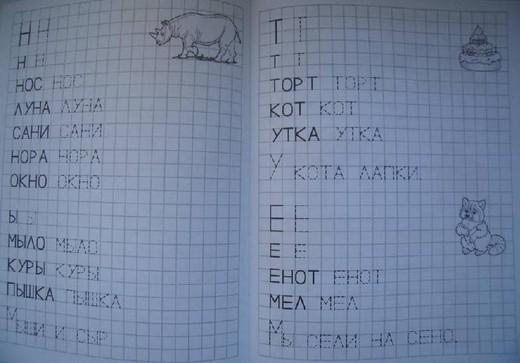 Н Н
Н Н
НОС НОС
ЛУНА ЛУНА
САНИ САНИ
НОРА НОРА
ОКНО ОКНО
Ы Ы
МЫЛО МЫЛО
КУРЫ КУРЫ
ПЫШКА ПЫШКА
МЫШИ И СЫР
Т Т
Т Т
ТОРТ ТОРТ
КОТ КОТ
УТКА УТКА
У КОТА ЛАПКИ.
Е Е
Е Е
ЕНОТ ЕНОТ
МЕЛ МЕЛ
МЫ СЕЛИ НА СЕНО.